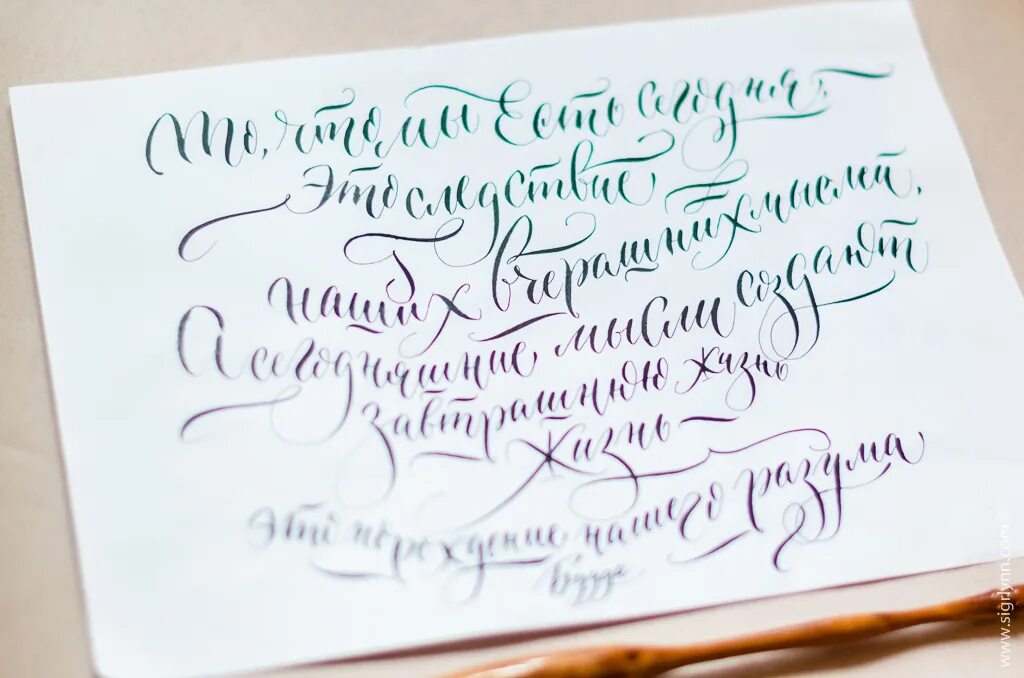 То, что мы Есть сегодня,
Это следствие
наших вчерашних мыслей,
А сегодняшние мысли создают
завтрашнюю жизнь
Жизнь —
Это порождение нашего разума
Будда
www.sigrlynn.com ©